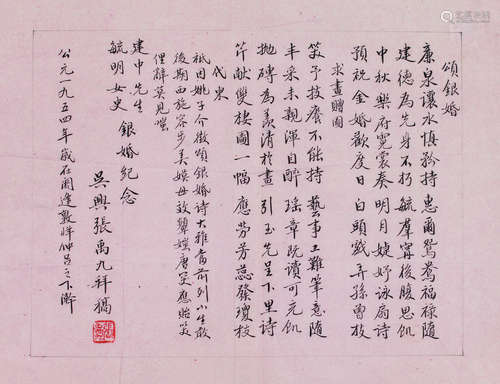 頌銀婚
廉泉讓水慎矜持惠爾鴛鴦福祿隨
建德為先身不朽毓羣甯後腹思飢
中秋樂府霓裳奏明月婕妤詠扇詩
預祝金婚歡度日白頭戲弄孫曾枝
求畫贈圖
笑予技癢不能持藝事工難筆意隨
丰采未親渾自醉瑤章既讀可充飢
拋磚為羨清於畫引玉先呈下里詩
芹献雙棲圖一幅應勞芳蕊發瓊枝
代柬
祗因姚子令徵頌銀婚詩大雅當前列小生敢
後期西施容步美嫫母效顰嬉唐突應貽笑
俚辭莫見嗤
建中先生
毓明女史 銀婚紀念
吳興張禹九祥稿
公元一九五四年歲在閼逢敦牂仲呂之下澣